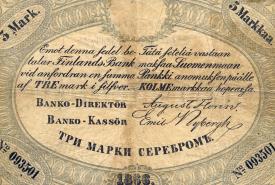 3 Mark.
3 Markkaa
Emot denna sedel be-
talar Finlands Bank
vid anfordran en summa
af TRE mark i silfver.
Tätä seteliä vastaan
maksaa Suomenmaan
Pankki anomuksen päälle
KOLME markkaa hopeassa.
BANKO-DIREKTÖR
BANKO-KASSÖR
ТРИ МАРКИ СЕРЕБРОМЪ.
1866.
Nº 093501
Nº 093501